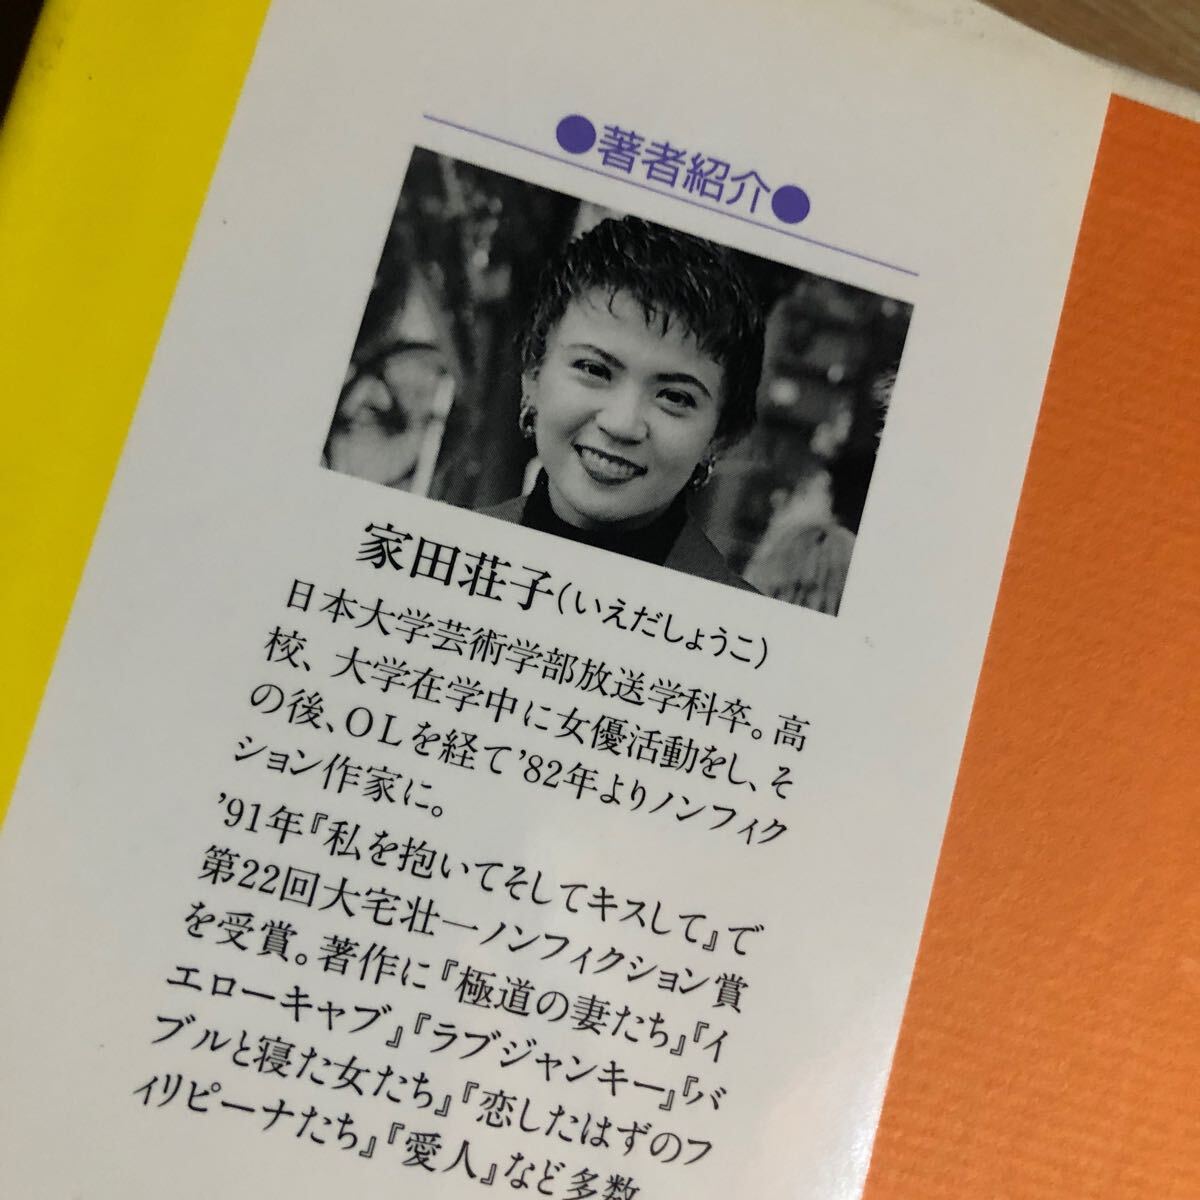 ●著者紹介●
家田荘子(いえだしょうこ)
日本大学芸術学部放送学科卒。高
校、大学在学中に女優活動をし、そ
の後、OLを経て'82年よりノンフィク
ション作家に。
'91年『私を抱いてそしてキスして』で
第22回大宅壮一ノンフィクション賞
を受賞。著作に『極道の妻たち』『イ
エローキャブ』『ラブジャンキー』『バ
ブルと寝た女たち』『恋したはずのフ
ィリピーナたち』『愛人』など多数